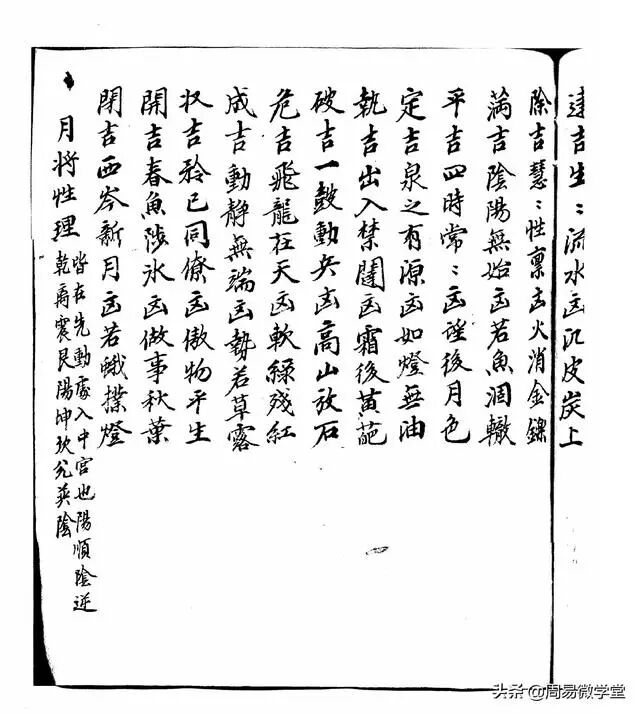 建吉生〻流水凶皮炭上
除吉慧〻性稟凶火消金鑠
滿吉陰陽無始凶若魚涸轍
平吉四時常〻凶後月色
定吉泉之有源凶如燈無油
執吉出入禁闥凶霜後黃葩
破吉一鼓動兵凶高山放石
危吉飛龍在天凶軟綠殘紅
成吉動靜無端凶勢若草露
収吉矜已同僚凶傲物平生
開吉春魚陟氷凶做事秋葉
閉吉西岑新月凶若蛾撲燈
月将性理
皆在先動處入中宮也陽順陰逆
乾离震艮陽坤坎兌巽陰
头条 @周易微学堂